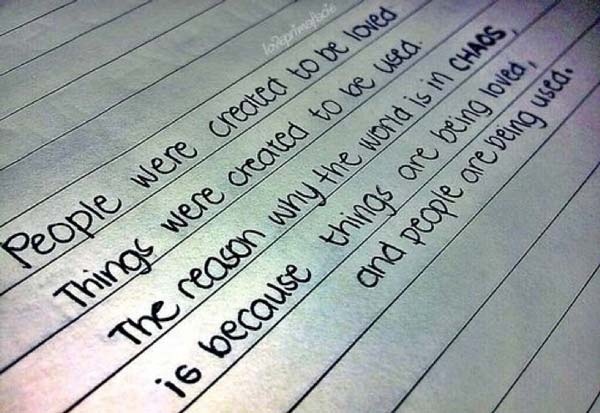 loveprimofacie
People were created to be loved
Things were created to be used.
The reason why the world is in CHAOS,
is because things are being loved,
and people are being used.